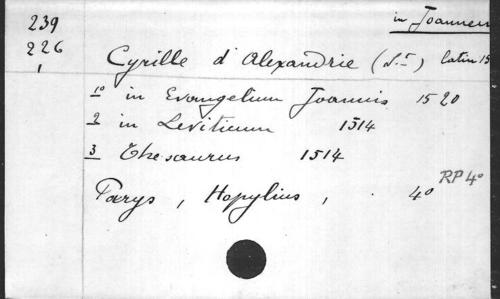 in Joannem
239
226
Cyrille d'Alexandrie (St) latin 15
1º in Evangelium Joannis 1520
2 in Leviticum 1514
3 Thesaurus 1514
RP 4º
Parys, Hopylius, 4º